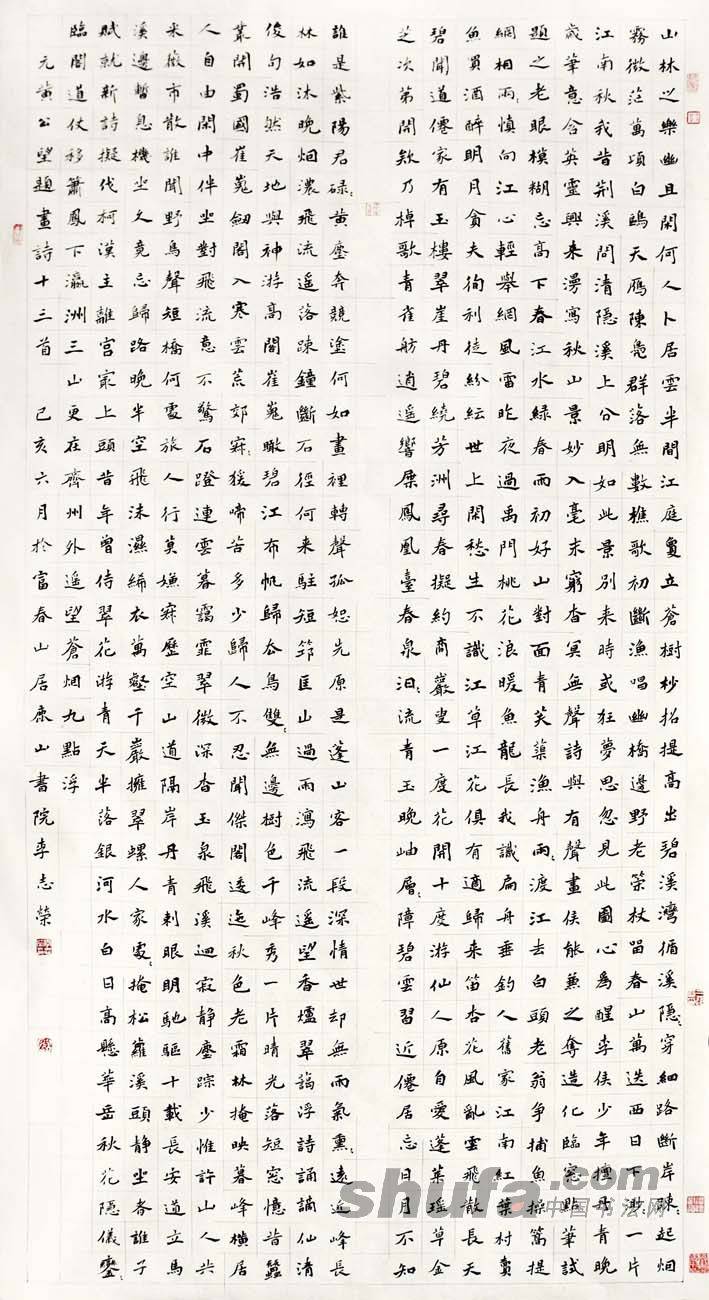 山林之樂幽且閑何人卜居雲半間江庭夐立蒼樹杪招提高出碧溪灣循溪隱〻穿細路斷岸疎〻起烟
霧微茫萬頃白鷗天雁陳鳧群落無數樵歌初斷漁唱幽橋邊野老策杖留春山萬迭西日下渺〻一片
江南秋我昔荆溪問清隱溪上分明如此景別来時或狂夢思忽見此圖心為醒李侯少年擅丹青晚
歲筆意含英靈興来漫寫秋山景妙入毫末窮杳冥無聲詩與有聲畫侯能兼之奪造化臨窓點筆試
題之老眼模糊忘高下春江水緑春雨初好山對面青芙蕖漁舟兩〻渡江去白頭老翁争捕魚操篙提
網相兩慎向江心輕舉網風雷昨夜過禹門桃花浪暖魚龍長我識扁舟垂釣人舊家江南紅葉村賣
魚買酒醉明月貪夫徇利徒紛紜世上閑愁生不識江草江花俱有適歸来笛杏花風亂雲飛散長天
碧聞道僊家有玉樓翠崖丹碧繞芳洲尋春擬約商巖叟一度花開十度游仙人原自愛蓬莱瑶草金
芝次第開欸乃棹歌青雀舫逍遥響屧鳳凰臺春泉汩〻流青玉晚岫層〻障碧雲習近僊居忘日月不知
誰是紫陽君碌〻黄塵奔競塗何如畫裡轉聲孤恕先原是蓬山客一段深情世却無雨氣熏〻遠近峰長
林如沐晚烟濃飛流遥落疎鐘斷石徑何来駐短筇匡山過雨瀉飛流遥望香爐翠靄浮詩誦謫仙清
俊句浩然天地與神游高閣崔嵬瞰碧江布帆歸去鳥雙〻無邊樹色千峰秀一片晴光落短窓憶昔蠶
叢開蜀國崔嵬劒閣入寒雲荒郊寂〻猿啼苦多少歸人不忍聞傑閣逶迤秋色老霜林掩映暮峰横居
人自由閑中伴坐對飛流意不驚石磴連雲暮靄霏翠微深杳玉泉飛溪迴寂静塵踪少惟許山人共
采薇市散誰聞野鳥聲短橋何處旅人行莫嫌寂歷空山道隔岸丹青刺眼明馳驅十載長安道立馬
溪邊暫息機坐久竟忘歸路晚半空飛沫濕絺衣萬壑千巖擁翠螺人家處〻掩松蘿溪頭静坐者誰子
賦就新詩擬伐柯漢主離宫㝡上頭昔年曾侍翠花游青天半落銀河水白日高懸華岳秋花隱儀鑾〻
臨閣道仗移簫鳳下瀛洲三山更在齊州外遥望蒼烟九點浮
元黄公望題畫詩十三首 己亥六月於富春山居鹿山書院李志榮
shufa.com
中国书法网